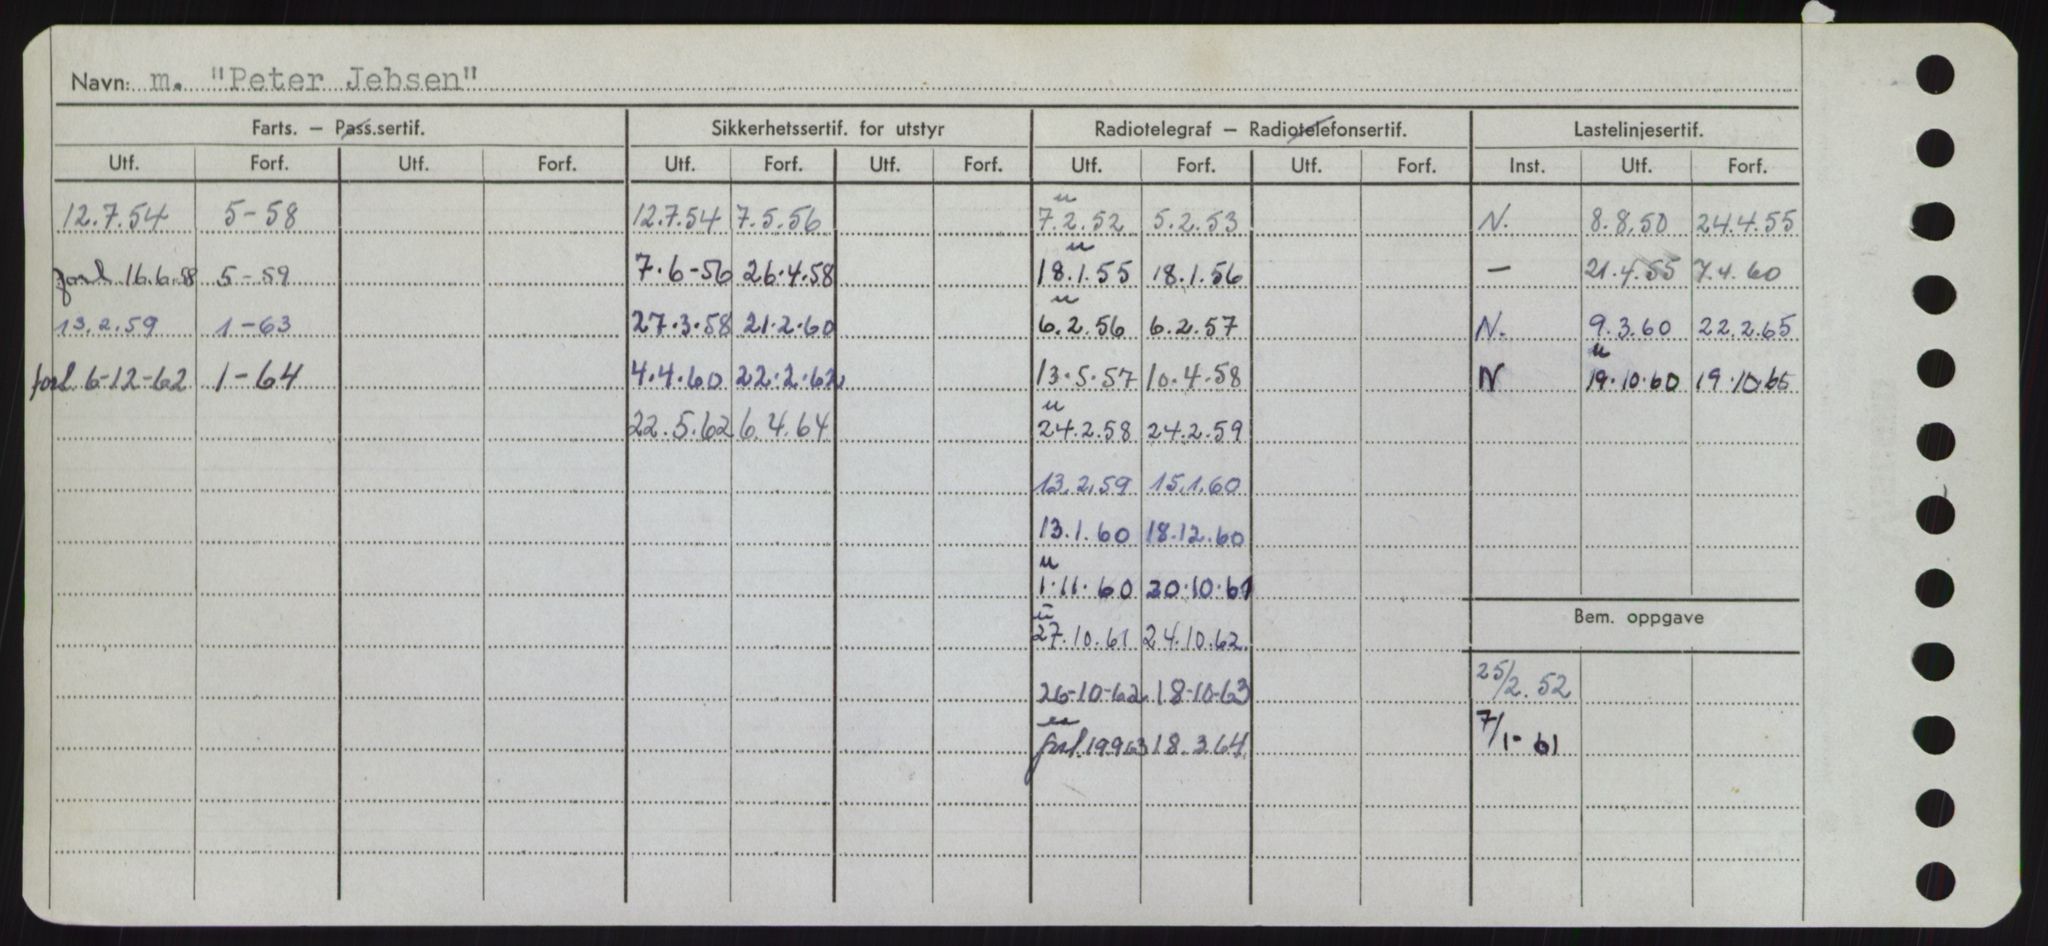 Navn: m. "Peter Jebsen"
Farts. — Pass.sertif. Sikkerhetssertif. for utstyr Radiotelegraf — Radiotelefonsertif. Lastelinjesertif.
Utf. Forf. Utf. Forf. Utf. Forf. Utf. Forf. Utf. Forf. Utf. Forf. Inst. Utf. Forf.
u
12.7.54 5-58 12.7.54 7.5.56 7.2.52 5.2.53 N. 8.8.50 24.4.55
u
forl 16.6.58 5-59 7.6-56 26.4.58 18.1.55 18.1.56 — 21.4.55 7.4.60
u
13.2.59 1-63 27.3.58 21.2.60 6.2.56 6.2.57 N. 9.3.60 22.2.65
u
forl 6-12-62 1-64 4.4.60 22.2.62 13.5.57 10.4.58 N 19.10.60 19.10.65
u
22.5.62 6.4.64 24.2.58 24.2.59
13.2.59 15.1.60
13.1.60 18.12.60
u
1.11.60 20.10.61
u
Bem. oppgave
27.10.61 24.10.62
26-10-62 18-10-63 25/2.52
forl. 19963 18.3.64 7/1-61